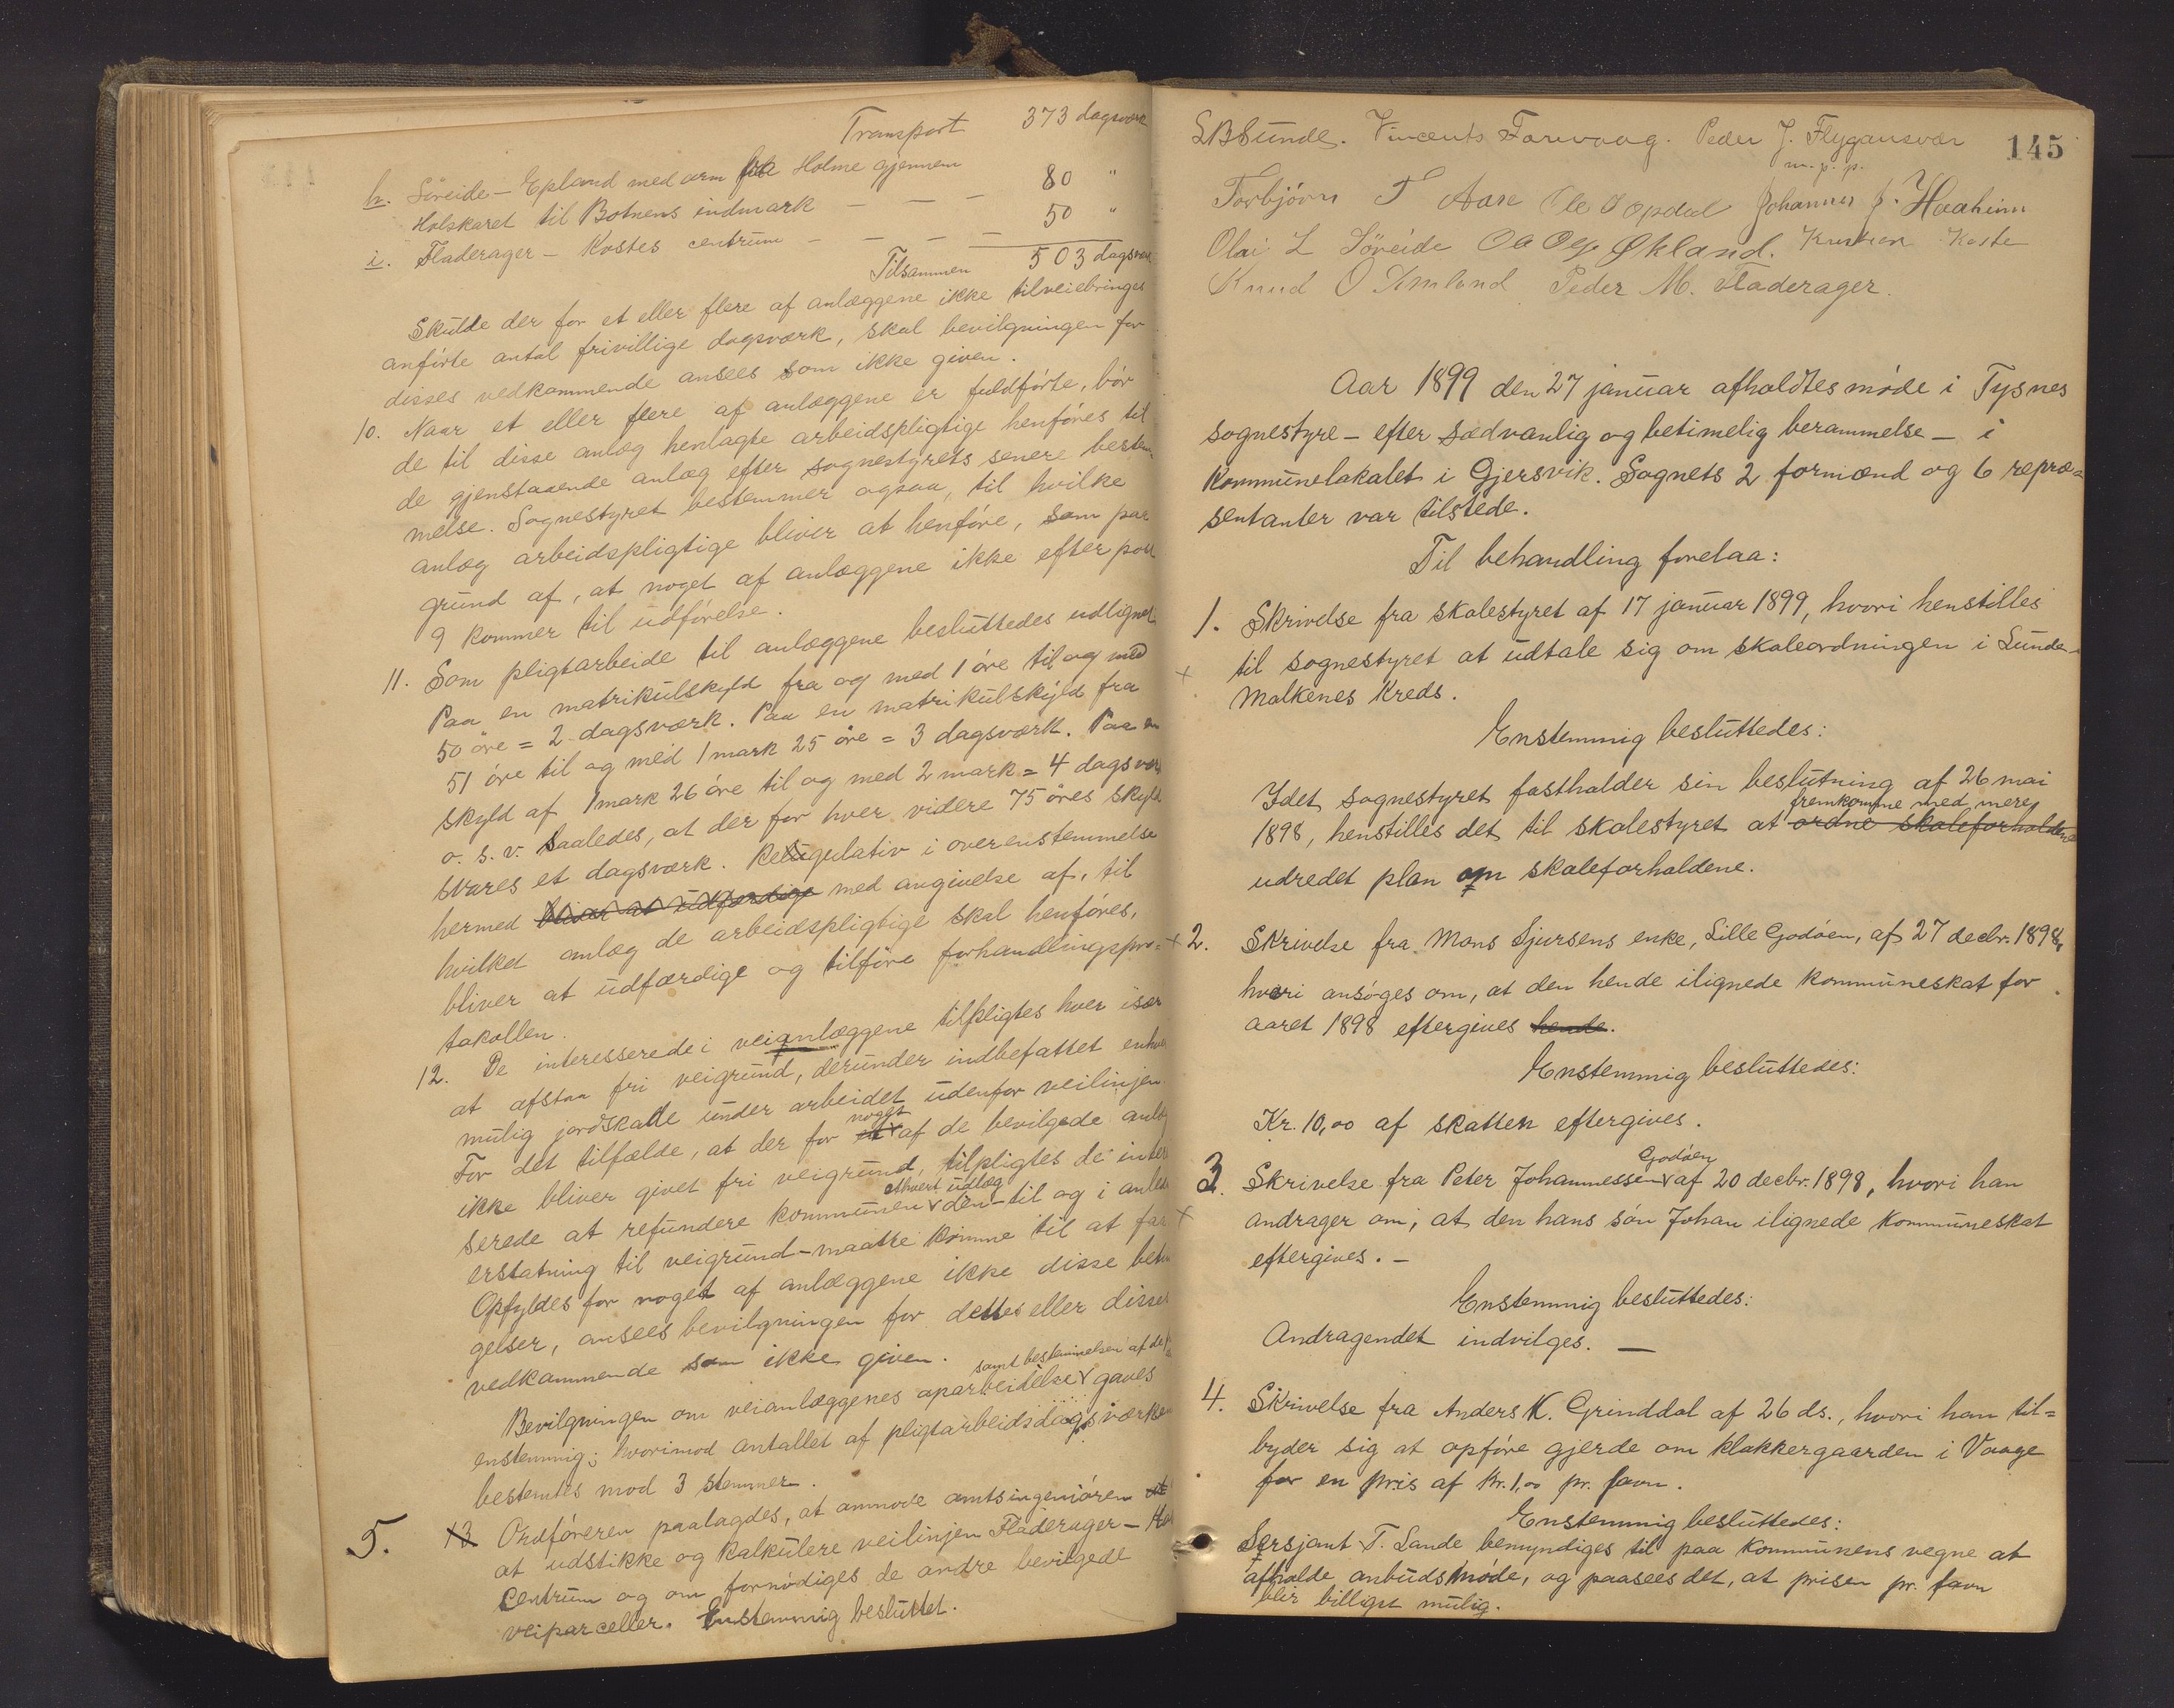 Transport 373 dagsværk
h. Søreide - Epland med arm fra Holme gjennem
Holskaret til Botnens indmark — — — 80 "
i. Fladerager - Kostes centrum — — — — 50 "
Tilsammen 503 dagsværk
Skulde der for et eller flere af anlæggene ikke tilveiebringes
anførte antal frivillige dagsværk, skal bevilgningen for
disses vedkommende ansees som ikke given.
10. Naar et eller flere af anlæggene er fuldførte, bør
de til disse anlæg henlagte arbeidspligtige henføres til
de gjenstaaende anlæg efter sognestyrets senere bestem-
melse. Sognestyret bestemmer ogsaa, til hvilke
anlæg arbeidspligtige bliver at henføre, som paa
grund af, at noget af anlæggene ikke efter post
9 kommer til udførelse.
11. Som pligtarbeide til anlæggene besluttedes udlignet
Paa en matrikulskyld fra og med 1 øre til og med
50 øre = 2 dagsværk. Paa en matrikulskyld fra
51 øre til og med 1 mark 25 øre = 3 dagsværk. Paa en
skyld af 1 mark 26 øre til og med 2 mark = 4 dagsværk
o. s. v. saaledes, at der for hver videre 75 øres skyld
svares et dagsværk. Regulativ i overenstemmelse
hermed bliver at udfærdige med angivelse af, til
hvilket anlæg de arbeidspligtige skal henføres,
bliver at udfærdige og tilføre forhandlingspro=
tokollen.
12. De interesserede i veianlæggene tilpligtes hver især
at afstaa fri veigrund, derunder indbefattet enhver
mulig jordskade under arbeidet udenfor veilinjen.
For det tilfælde, at der for noget af de bevilgede anlæg
ikke bliver givet fri veigrund, tilpligtes de interes
serede at refundere kommunen ethvert udlæg den - til og i anled
erstatning til veigrund - maatte komme til at faa
Opfyldes for noget af anlæggene ikke disse betin
gelser, ansees bevilgningen for dettes eller disses
vedkommende som ikke given.
Bevilgningen om veianlæggenes oparbeidelse samt bestemmelsen af de gaves
enstemmig; hvorimod antallet af pligtarbeidsdagsværker
bestemtes mod 3 stemmer.
5. 13 Ordføreren paalagdes, at anmode amtsingeniøren
at udstikke og kalkulere veilinjen Fladerager - Kostes
Centrum og om fornødiges de andre bevilgede
veiparceller. Enstemmig besluttet.
145
L B Sunde. Vincents Farvoog. Peder J. Flygansvær
m. p. p.
Torbjørn T Aase Ole O Opdal Johannes J. Haaheim
Olai L Søreide Ole Økland. Kristian Koste
Knud O Amland Peder M. Fladerager.
Aar 1899 den 27 januar afholdtes møde i Tysnes
sognestyre - efter sædvanlig og betimelig berammelse - i
kommunelokalet i Gjersvik. Sognets 2 formænd og 6 repræ=
sentanter var tilstede.
Til behandling forelaa:
1. Skrivelse fra skolestyret af 17 januar 1899, hvori henstilles
til sognestyret at udtale sig om skoleordningen i Lunde-
Malkenes Kreds.
Enstemmig besluttedes:
Idet sognestyret fastholder sin beslutning af 26 mai
fremkomme med mere
1898, henstilles det til skolestyret at ordne skoleforholdene
udredet plan om skoleforholdene.
2. Skrivelse fra Mons Sjursens enke, Lille Godøen, af 27 decbr. 1898,
hvori ansøges om, at den hende ilignede kommuneskat for
aaret 1898 eftergives hende.
Enstemmig besluttedes:
Kr. 10,00 af skatten eftergives.
Godøen
3. Skrivelse fra Peter Johannessen af 20 decbr. 1898, hvori han
andrager om, at den hans søn Johan ilignede kommuneskat
eftergives. -
Enstemmig besluttedes:
Andragendet indvilges. —
4. Skrivelse fra Anders K. Grinddal af 26 ds., hvori han til=
byder sig at opføre gjerde om klokkergaarden i Vaage
for en pris af kr. 1,00 pr. favn.
Enstemmig besluttedes:
Sersjant T. Lande bemyndiges til paa kommunens vegne at
afholde anbudsmøde, og paasees det, at prisen pr. favn
blir billigst mulig.